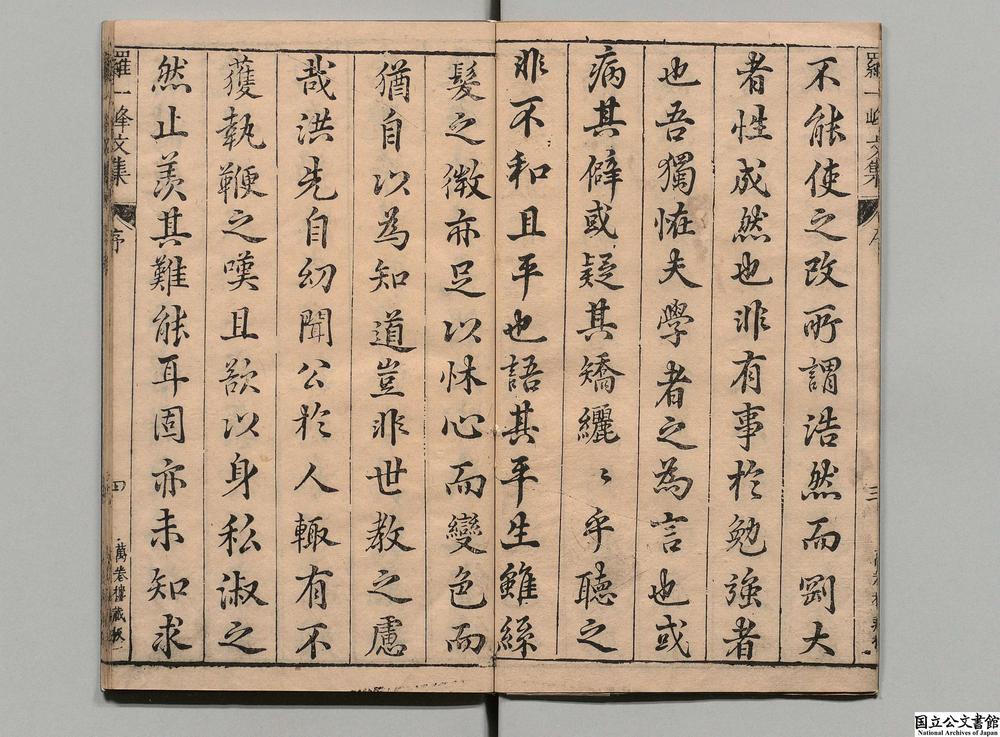 羅一峰文集
序
三
不能使之改所謂浩然而剛大
者性成然也非有事於勉強者
也吾獨恠夫學者之為言也或
病其僻或疑其矯纚〻乎聽之
非不和且平也語其平生雖絲
髮之微亦足以怵心而變色而
猶自以為知道豈非世教之慮
哉洪先自幼聞公於人輙有不
獲執鞭之嘆且欲以身私淑之
然止羨其難能耳固亦未知求
羅一峰文集
序
四
萬卷樓藏板
国立公文書館
National Archives of Japan